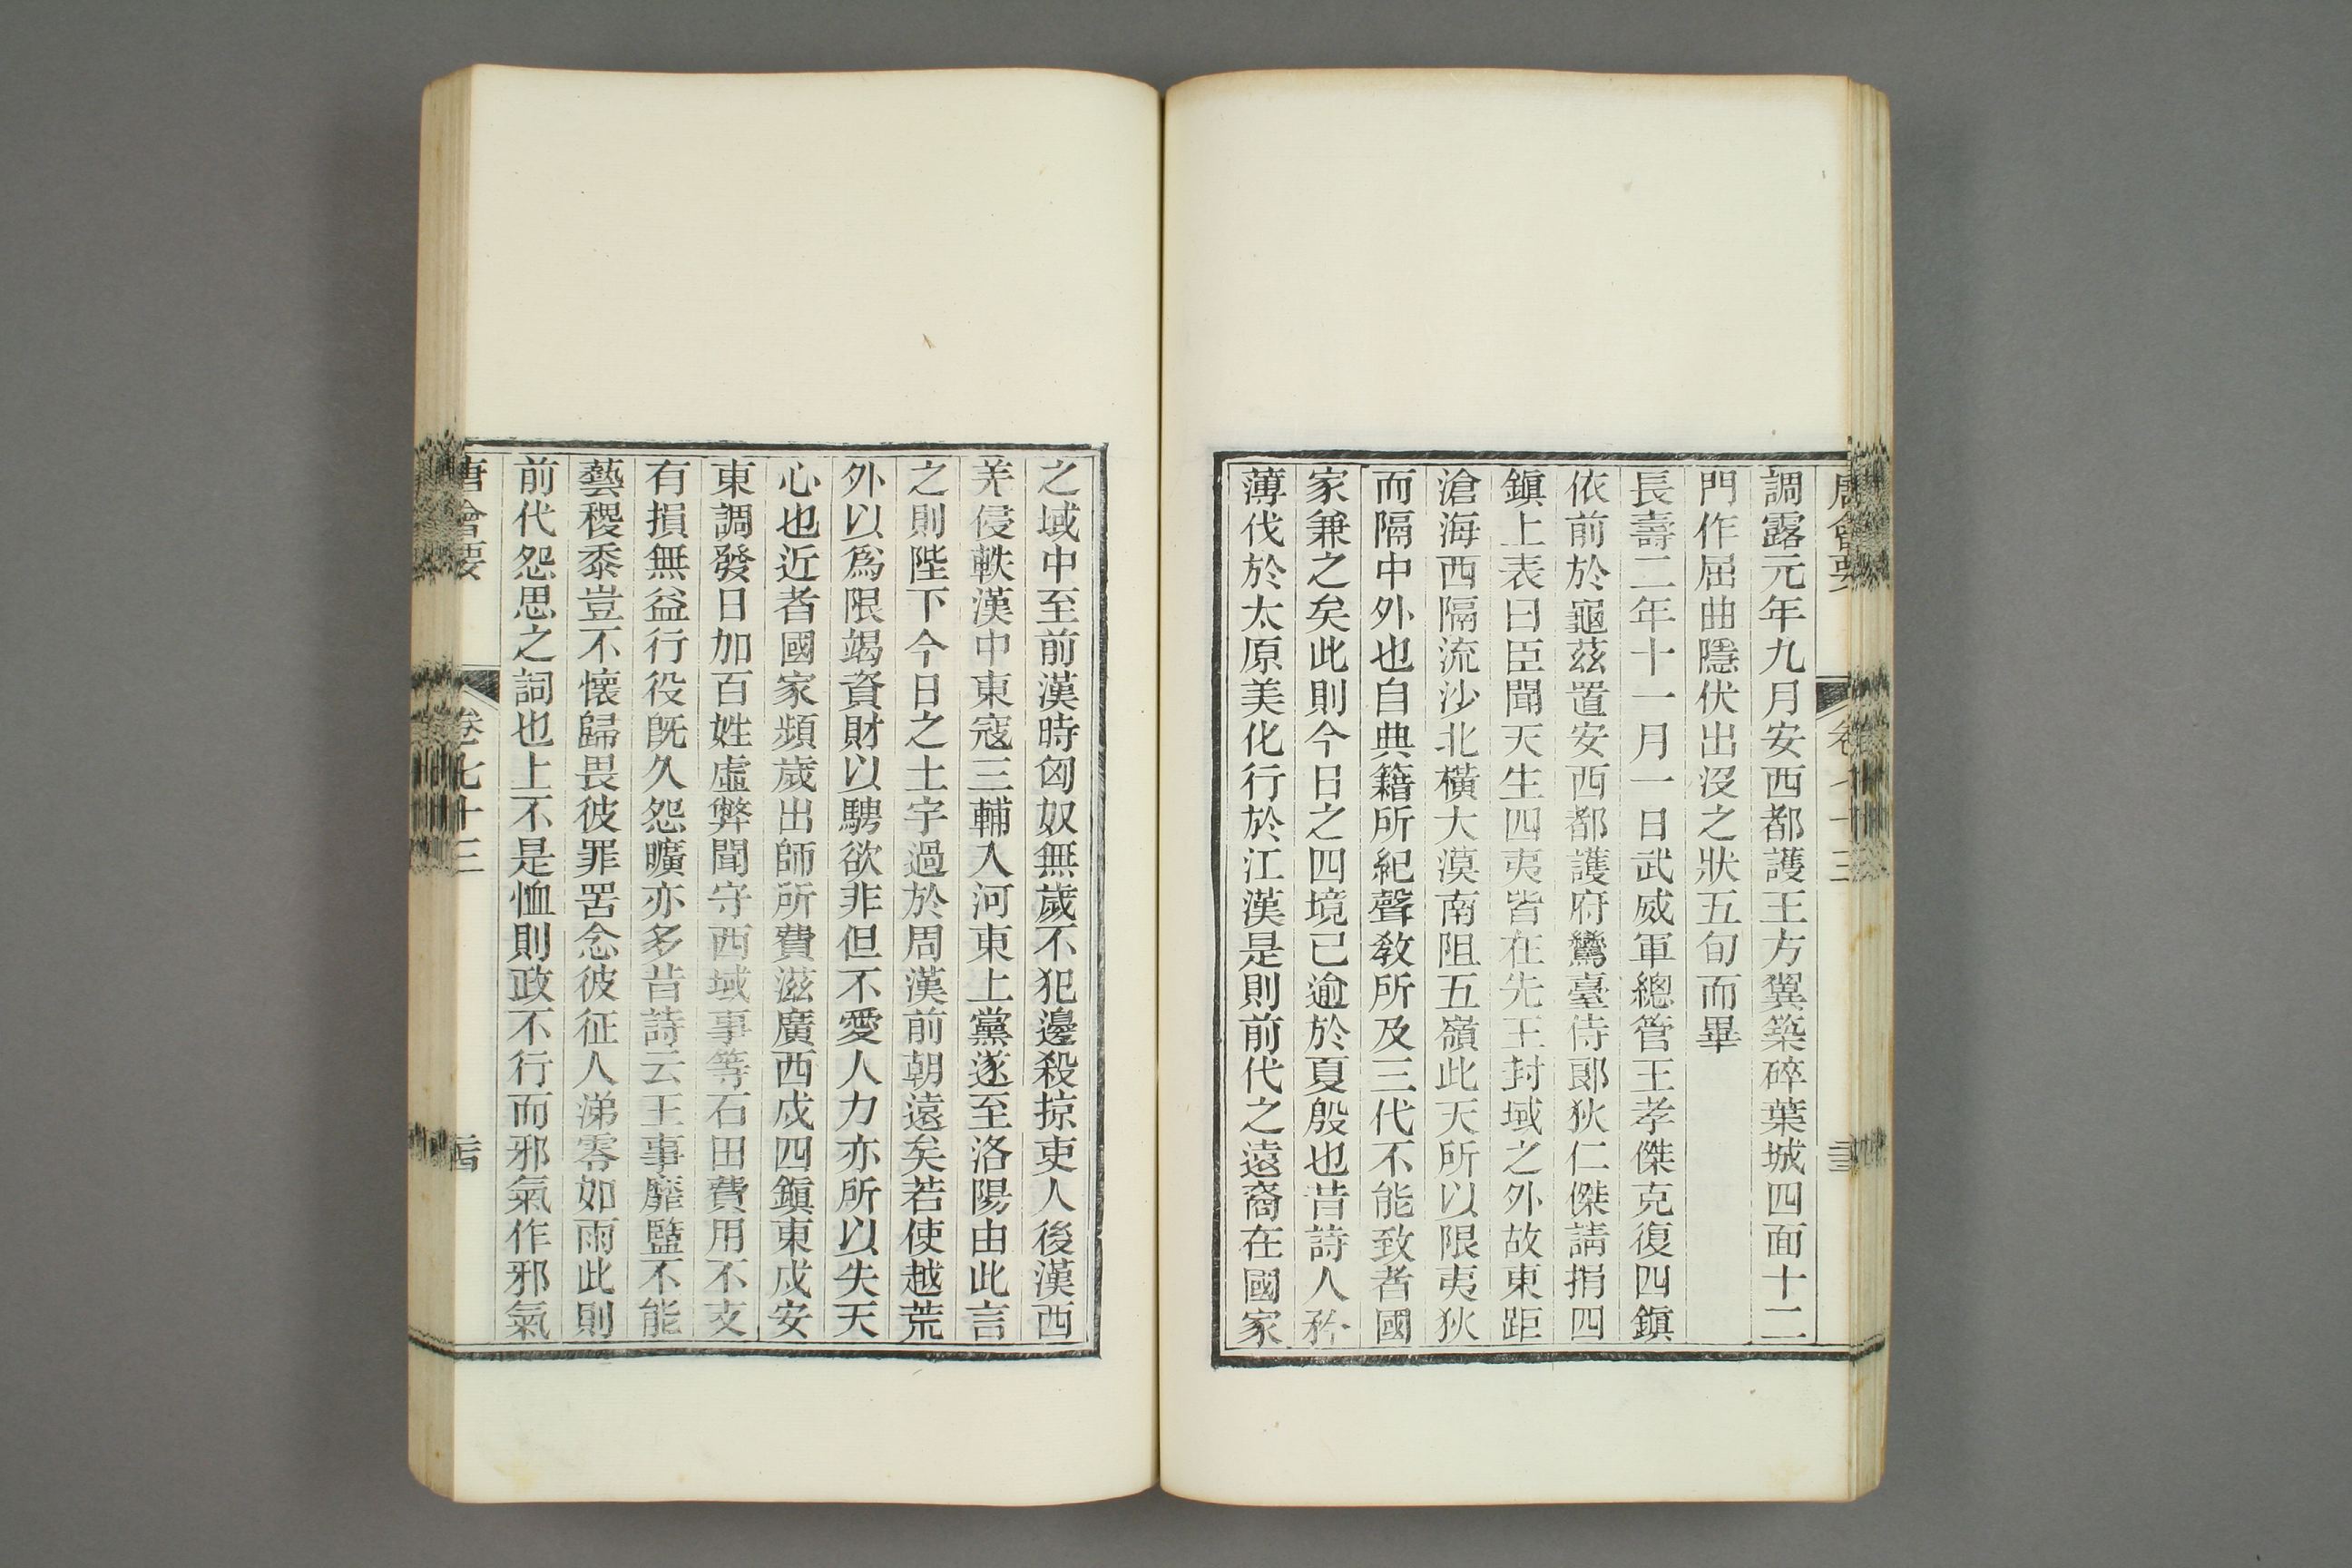 唐會要 卷七十三
調露元年九月安西都護王方翼築碎葉城四面十二
門作屈曲隱伏出沒之狀五旬而畢
長壽二年十一月一日武威軍總管王孝傑克復四鎮
依前於龜茲置安西都護府鸞臺侍郎狄仁傑請捐四
鎮上表曰臣聞天生四夷皆在先王封域之外故東距
滄海西隔流沙北橫大漠南阻五嶺此天所以限夷狄
而隔中外也自典籍所紀聲敎所及三代不能致者國
家兼之矣此則今日之四境已逾於夏殷也昔詩人矜
薄伐於太原美化行於江漢是則前代之遠裔在國家
之域中至前漢時匈奴無歲不犯邊殺掠吏人後漢西
羌侵軼漢中東寇三輔入河東上黨遂至洛陽由此言
之則陛下今日之土宇過於周漢前朝遠矣若使越荒
外以爲限竭資財以騁欲非但不愛人力亦所以失天
心也近者國家頻歲出師所費滋廣西戍四鎮東戍安
東調發日加百姓虛弊開守西域事等石田費用不支
有損無益行役旣久怨曠亦多昔詩云王事靡盬不能
藝稷黍豈不懷歸畏彼罪罟念彼征人涕零如雨此則
前代怨思之詞也上不是恤則政不行而邪氣作邪氣
唐會要 卷七十三